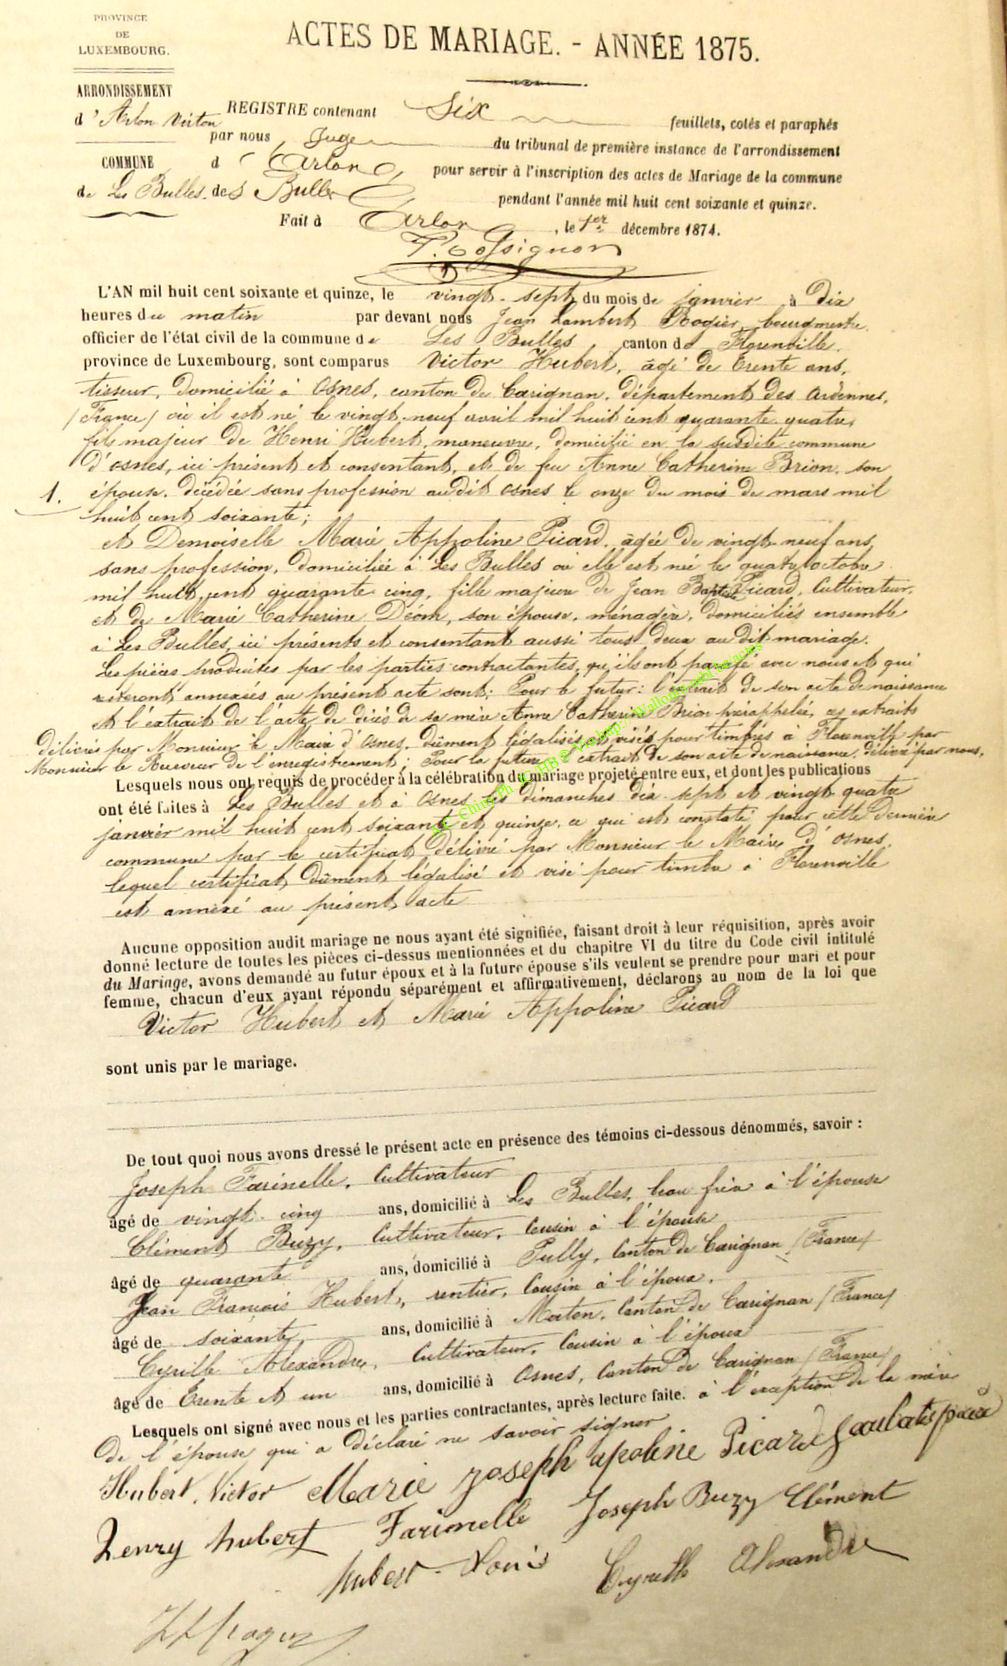 PROVINCE
DE
LUXEMBOURG.
ACTES DE MARIAGE. - ANNÉE 1875.
ARRONDISSEMENT
d'Arlon Virton
COMMUNE
de Les Bulles.
REGISTRE contenant Six feuillets, cotés et paraphés
par nous Juge du tribunal de première instance de l'arrondissement
d'Arlon pour servir à l'inscription des actes de Mariage de la commune
des Bulles pendant l'année mil huit cent soixante et quinze.
Fait à Arlon, le 1er décembre 1874.
L'AN mil huit cent soixante et quinze, le vingt-sept du mois de janvier à dix
heures du matin par devant nous Jean Lambert Rogier, bourgmestre
officier de l'état civil de la commune de Les Bulles canton de Florenville,
province de Luxembourg, sont comparus Victor Hubert, âgé de trente ans,
tisseur, domicilié à Osnes, canton de Carignan, département des Ardennes,
(France) où il est né le vingt-neuf avril mil huit cent quarante quatre,
fils majeur de Henri Hubert, manœuvre, domicilié en la susdite commune
d'Osnes, ici présent et consentant, et de feu Anne Catherine Brion, son
1. épouse, décédée sans profession audit Osnes le onze du mois de mars mil
huit cent soixante;
et Demoiselle Marie Appoline Picard, âgée de vingt-neuf ans,
sans profession, domiciliée à Les Bulles où elle est née le quatre octobre
mil huit cent quarante cinq, fille majeure de Jean Baptiste Picard, cultivateur,
et de Marie Catherine Déom, son épouse, ménagère, domiciliés ensemble
à Les Bulles, ici présents et consentant aussi tous deux au dit mariage.
Les pièces produites par les parties contractantes, qu'ils ont parafé avec nous et qui
resteront annexées au présent acte sont: Pour le futur: l'extrait de son acte de naissance
et l'extrait de l'acte de décès de sa mère Anne Catherine Brion prérappelée, ces extraits
délivrés par Monsieur le Maire d'Osnes, dûment légalisés et visés pour timbres à Florenville par
Monsieur le Receveur de l'enregistrement; Pour la future: extrait de son acte de naissance délivré par nous.
Lesquels nous ont requis de procéder à la célébration du mariage projeté entre eux, et dont les publications
ont été faites à Les Bulles et à Osnes les dimanches dix-sept et vingt quatre
janvier mil huit cent soixante et quinze, ce qui est constaté pour cette dernière
commune par le certificat délivré par Monsieur le Maire d'Osnes,
lequel certificat dûment légalisé et visé pour timbre à Florenville
est annexé au présent acte
Aucune opposition audit mariage ne nous ayant été signifiée, faisant droit à leur réquisition, après avoir
donné lecture de toutes les pièces ci-dessus mentionnées et du chapitre VI du titre du Code civil intitulé
du Mariage, avons demandé au futur époux et à la future épouse s'ils veulent se prendre pour mari et pour
femme, chacun d'eux ayant répondu séparément et affirmativement, déclarons au nom de la loi que
Victor Hubert et Marie Appoline Picard
sont unis par le mariage.
De tout quoi nous avons dressé le présent acte en présence des témoins ci-dessous dénommés, savoir :
Joseph Farinelle, cultivateur
âgé de vingt-cinq ans, domicilié à Les Bulles, beau frère à l'épouse
Clément Buzy, cultivateur, cousin à l'épouse
âgé de quarante ans, domicilié à Pully, canton de Carignan (France)
Jean François Hubert, rentier, cousin à l'époux,
âgé de soixante ans, domicilié à canton de Carignan (France)
Cyrille Alexandre, cultivateur, cousin à l'époux
âgé de trente et un ans, domicilié à Osnes, canton de Carignan (France)
Lesquels ont signé avec nous et les parties contractantes, après lecture faite. à l'exception de la mère
de l'épouse qui a déclaré ne savoir signer
Hubert Victor Marie Joseph apoline Picard
Henry hubert Farinelle Joseph Buzy Clément
hubert Louis Cyrille Alexandre